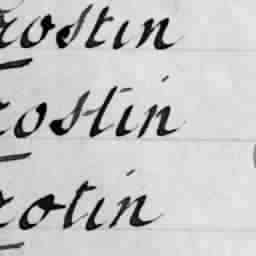 rostin
rostin
rotin